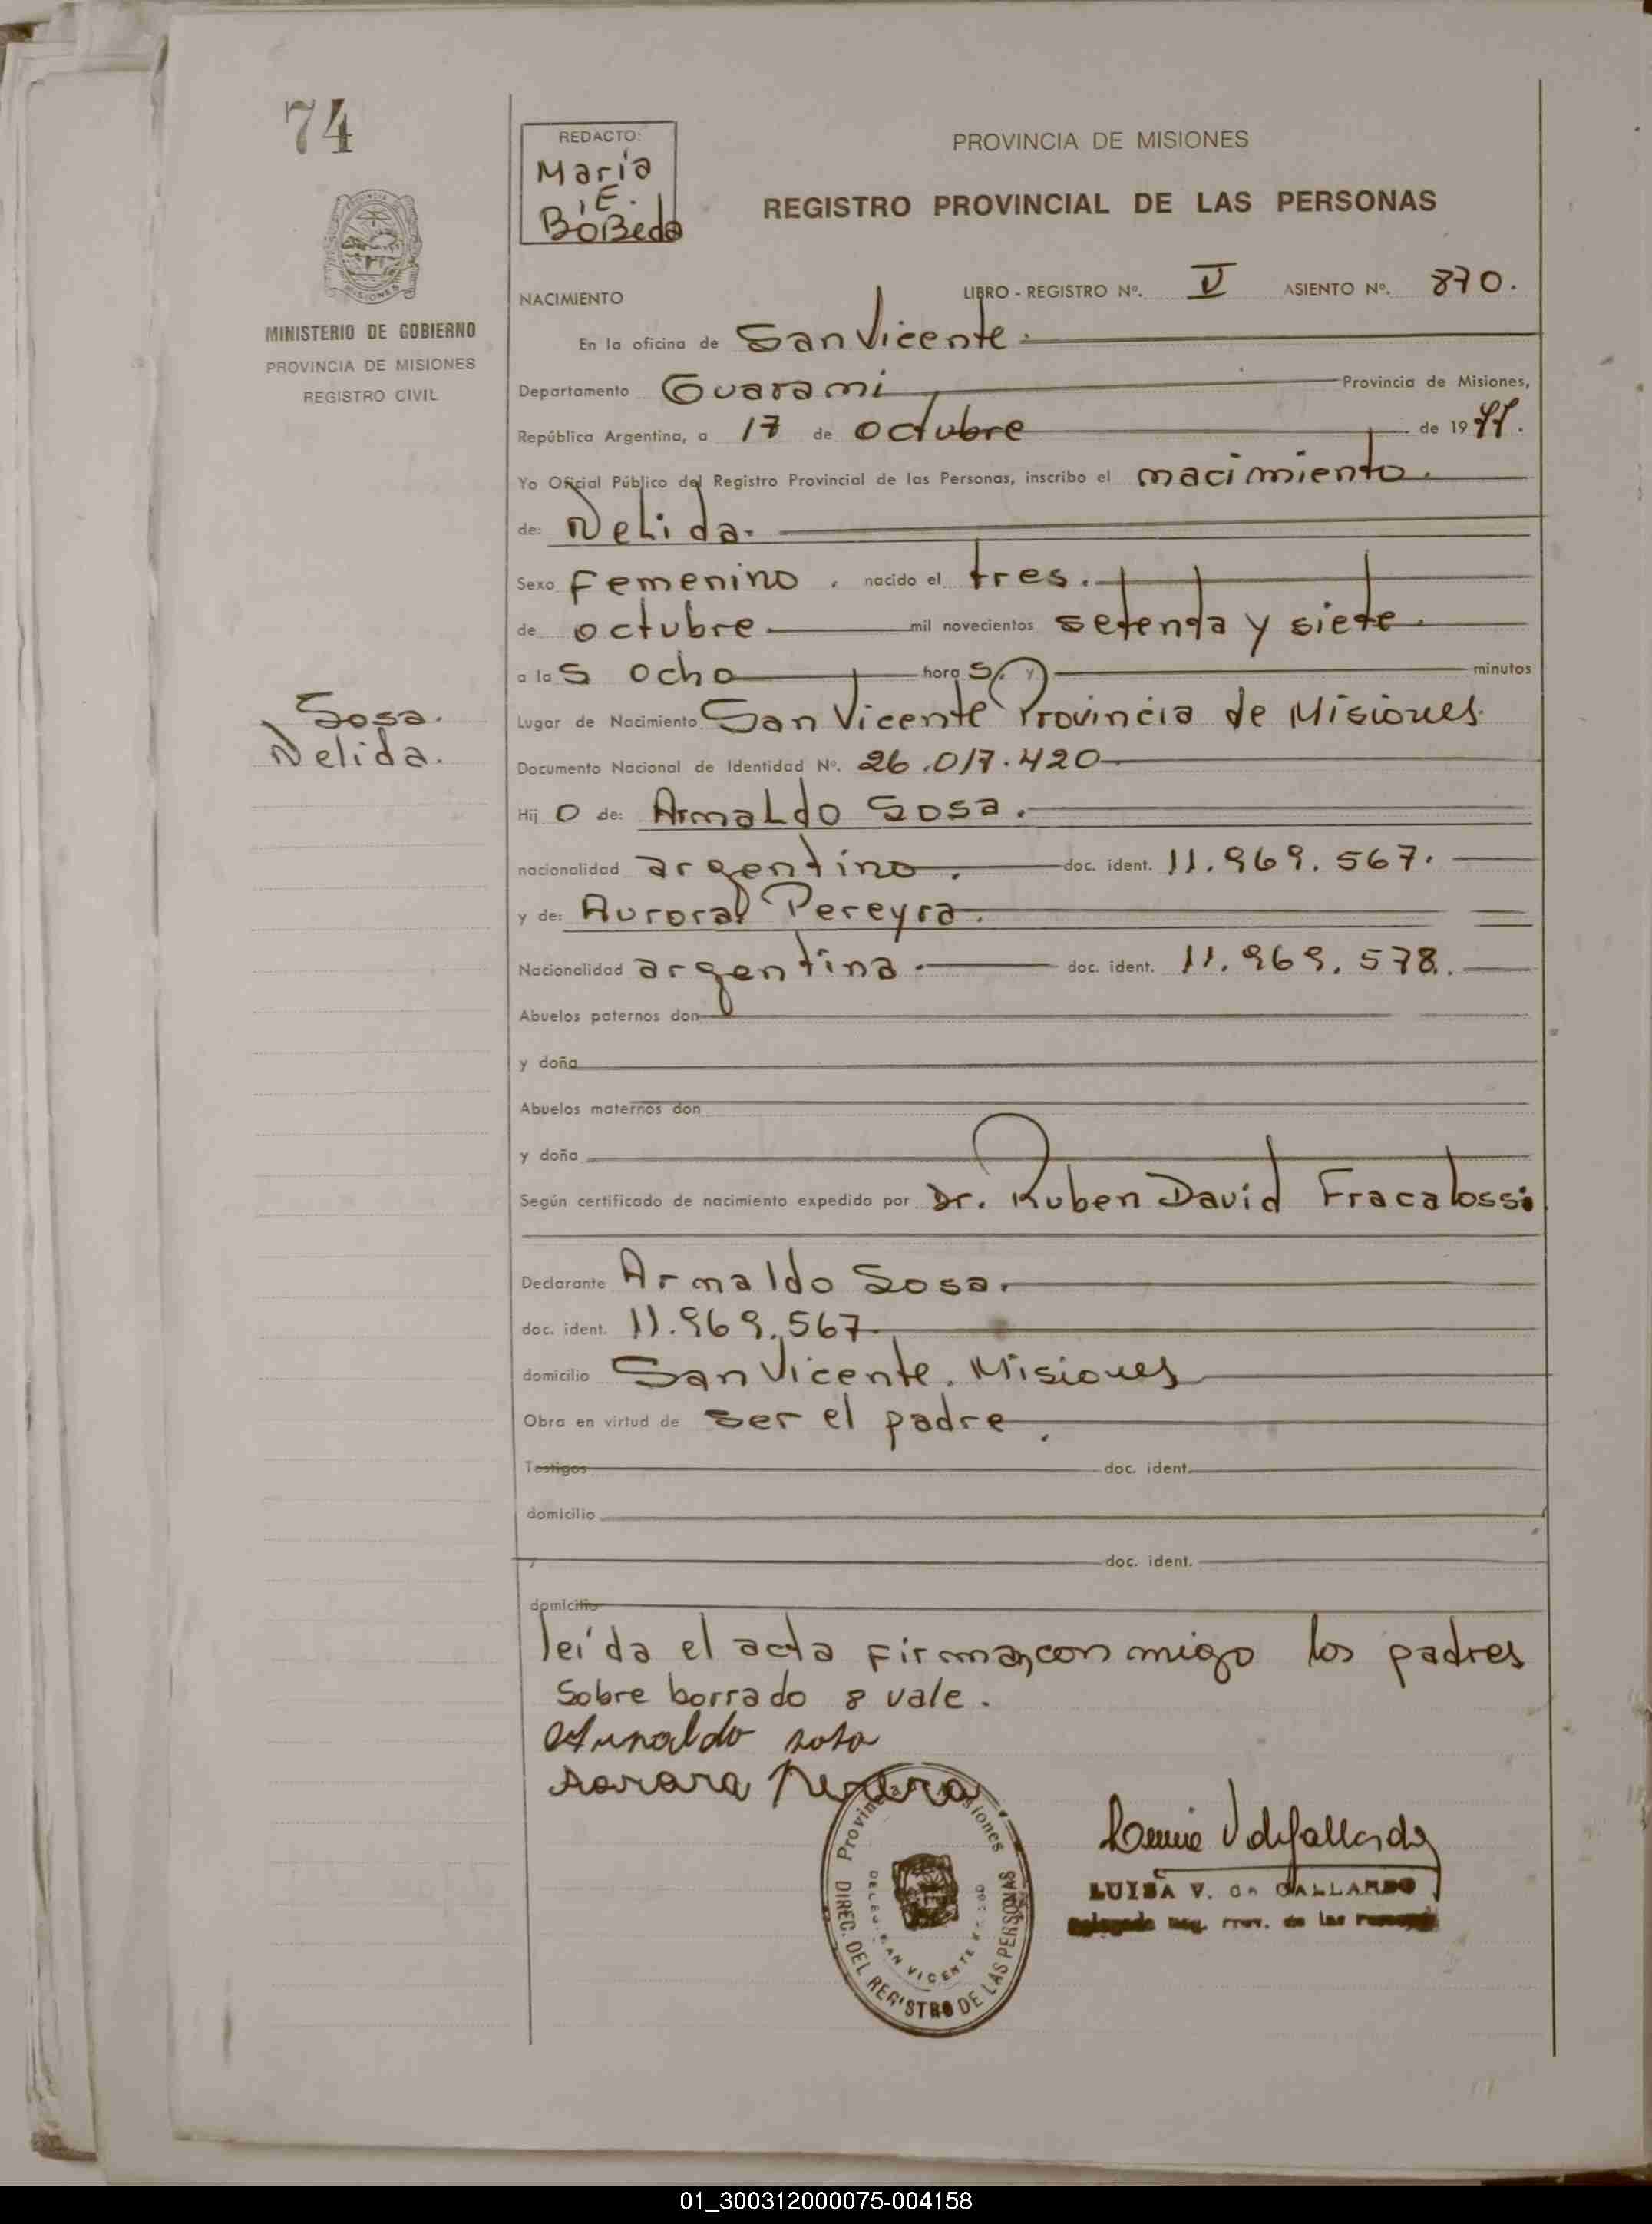 74
REDACTO:
Maria
E.
BoBeda
PROVINCIA DE MISIONES
REGISTRO PROVINCIAL DE LAS PERSONAS
MISIONES
MINISTERIO DE GOBIERNO
PROVINCIA DE MISIONES
REGISTRO CIVIL
NACIMIENTO LIBRO - REGISTRO Nº. V ASIENTO Nº. 870.
En la oficina de San Vicente.
Departamento Guarami Provincia de Misiones,
República Argentina, a 17 de octubre de 1977.
Yo Oficial Público del Registro Provincial de las Personas, inscribo el macimiento.
de: Nelida.
Sexo Femenino. nacido el tres.
de octubre mil novecientos setenta y siete.
a las ocho horas. y minutos
Sosa.
Nelida.
Lugar de Nacimiento San Vicente Provincia de Misiones.
Documento Nacional de Identidad Nº. 26.017.420
Hijo de: Arnaldo Sosa.
nacionalidad argentino. doc. ident. 11.969.567.
y de: Aurora Pereyra.
Nacionalidad argentina. doc. ident. 11.969.578.
Abuelos paternos don
y doña
Abuelos maternos don
y doña
Según certificado de nacimiento expedido por Dr. Ruben David Fracalossi
Declarante Arnaldo Sosa.
doc. ident. 11.969.567.
domicilio San Vicente. Misiones
Obra en virtud de ser el padre.
Testigos doc. ident.
domicilio
y doc. ident.
domicilio
leída el acta firman con migo los padres
Sobre borrado 8 vale.
Arnaldo sosa
Aurora Pereyra
Provincia Misiones
DIREC. DEL REGISTRO DE LAS PERSONAS
SAN VICENTE
LUISA V. de GALLARDO
Delegada Reg. Prov. de las Personas
01_300312000075-004158